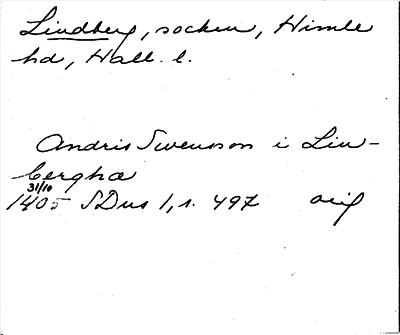 Lindberg, socken, Himle
hd, Hall. l.
Andris Swensson i Lin-
bergha
31/10
1405 SDns 1, s. 497 orig